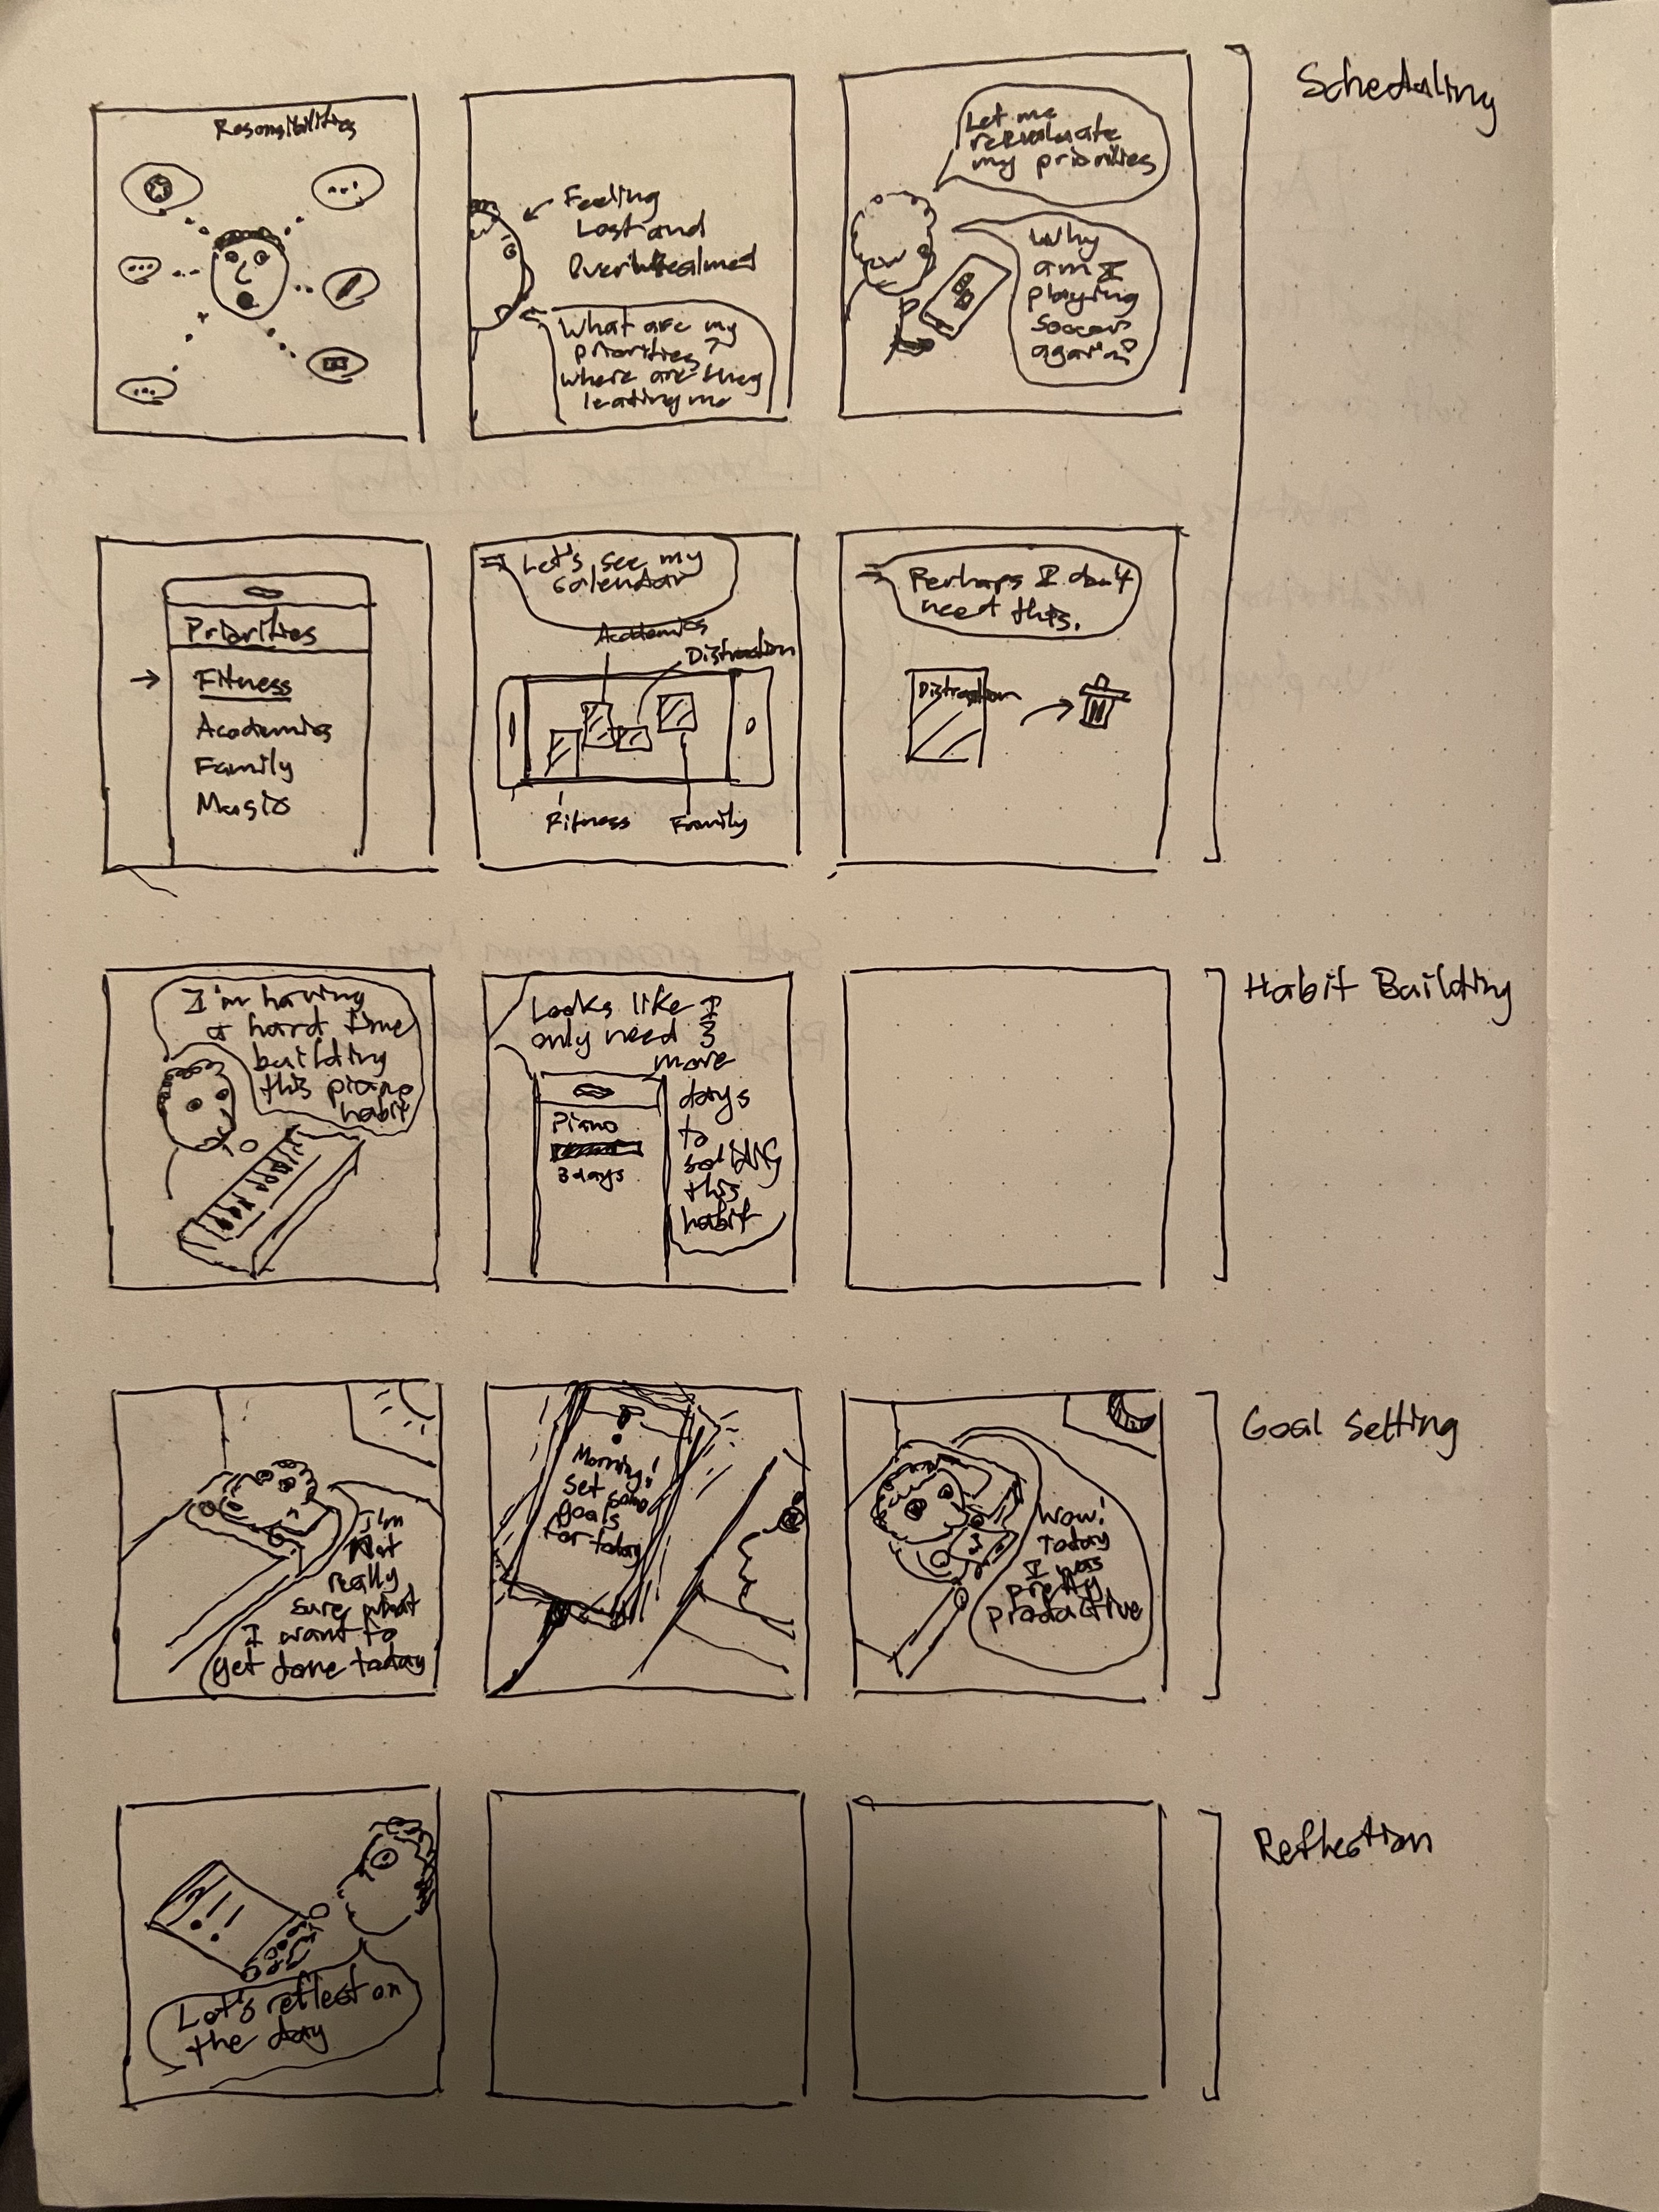 Scheduling
Resonsibilities
Feeling
Lost and
Overwhealmed
What are my
priorities?
where are they
leading me
Let me
reevaluate
my priorities
Why
am I
playing
soccer
again?
Priorities
Fitness
Academics
Family
Music
Let's see my
Calendar
Academics
Distraction
Fitness
Family
Perhaps I don't
need this.
Distraction
Habit Building
I'm having
a hard time
building
this piano
habit
Looks like I
only need 3
more
days
to
this
habit
Piano
3 days
Goal Setting
I'm
Not
really
sure what
I want to
get done today
Morning!
Set some
goals
for today
Wow!
Today
I was
pretty
productive
Reflection
Let's reflect on
the day